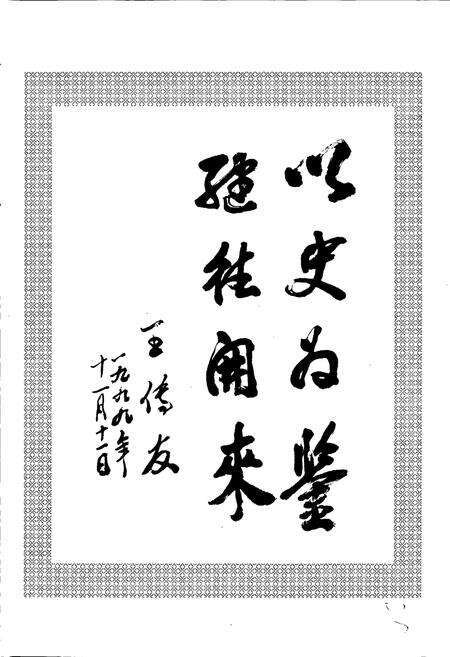 以史为鉴
继往開來
王傳友
一九九九年
十一月十一日